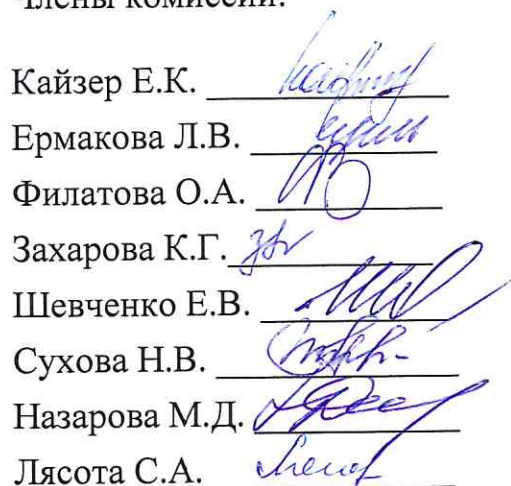 Члены комиссии:
Кайзер Е.К.
Ермакова Л.В.
Филатова О.А.
Захарова К.Г.
Шевченко Е.В.
Сухова Н.В.
Назарова М.Д.
Лясота С.А.